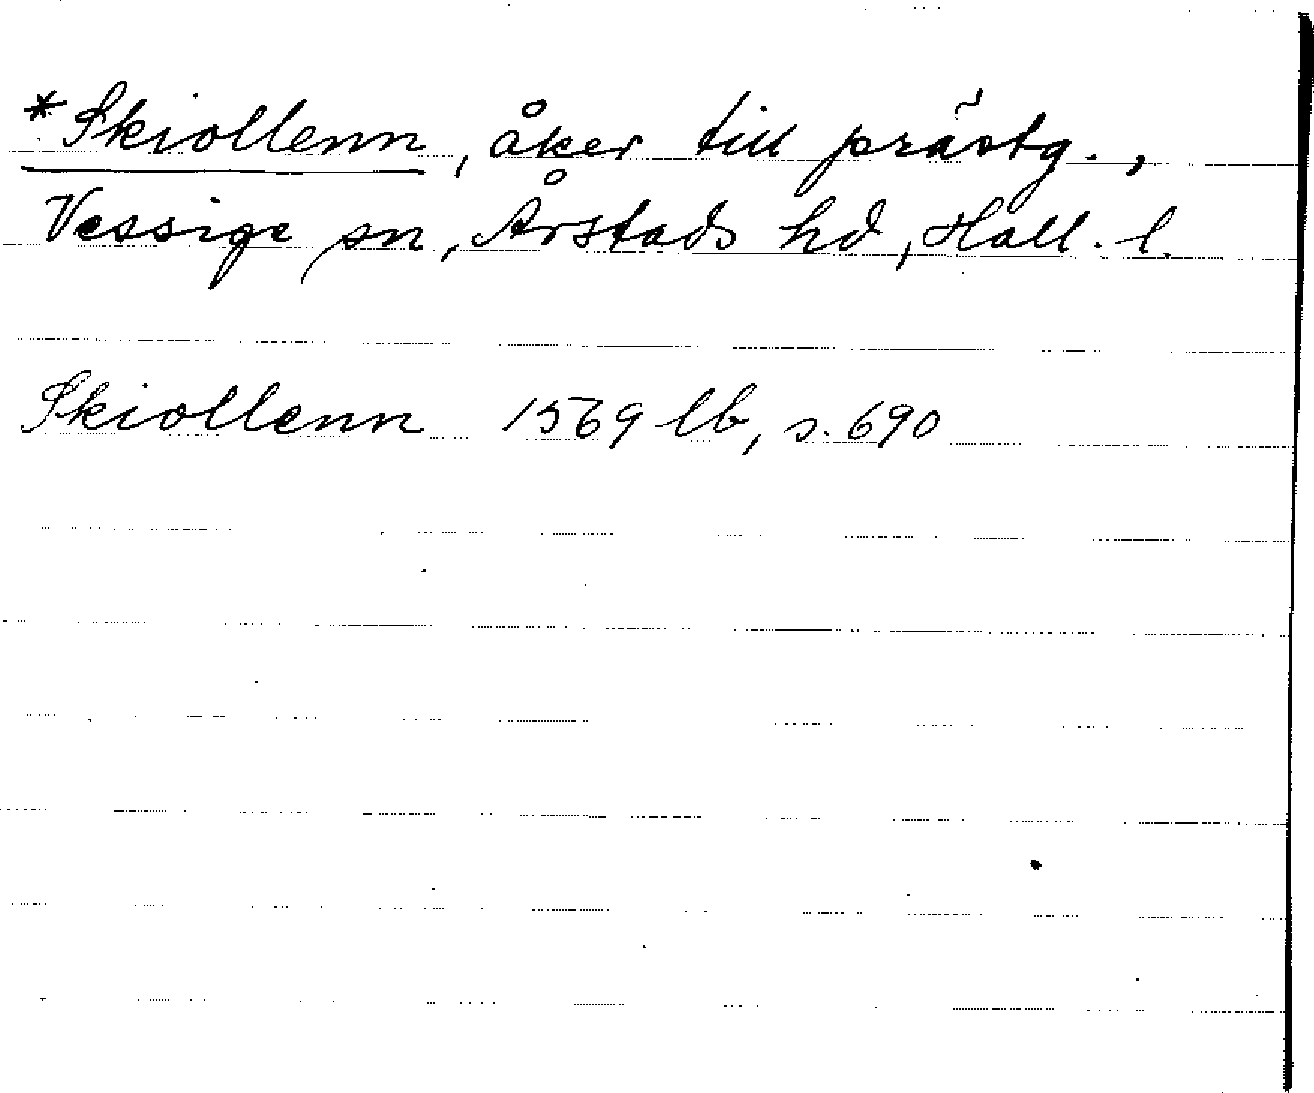 *Skiollenn, åker till prästg.,
Vessige sn, Årstads hd, Hall. l.
Skiollenn 1569 lb, s. 690